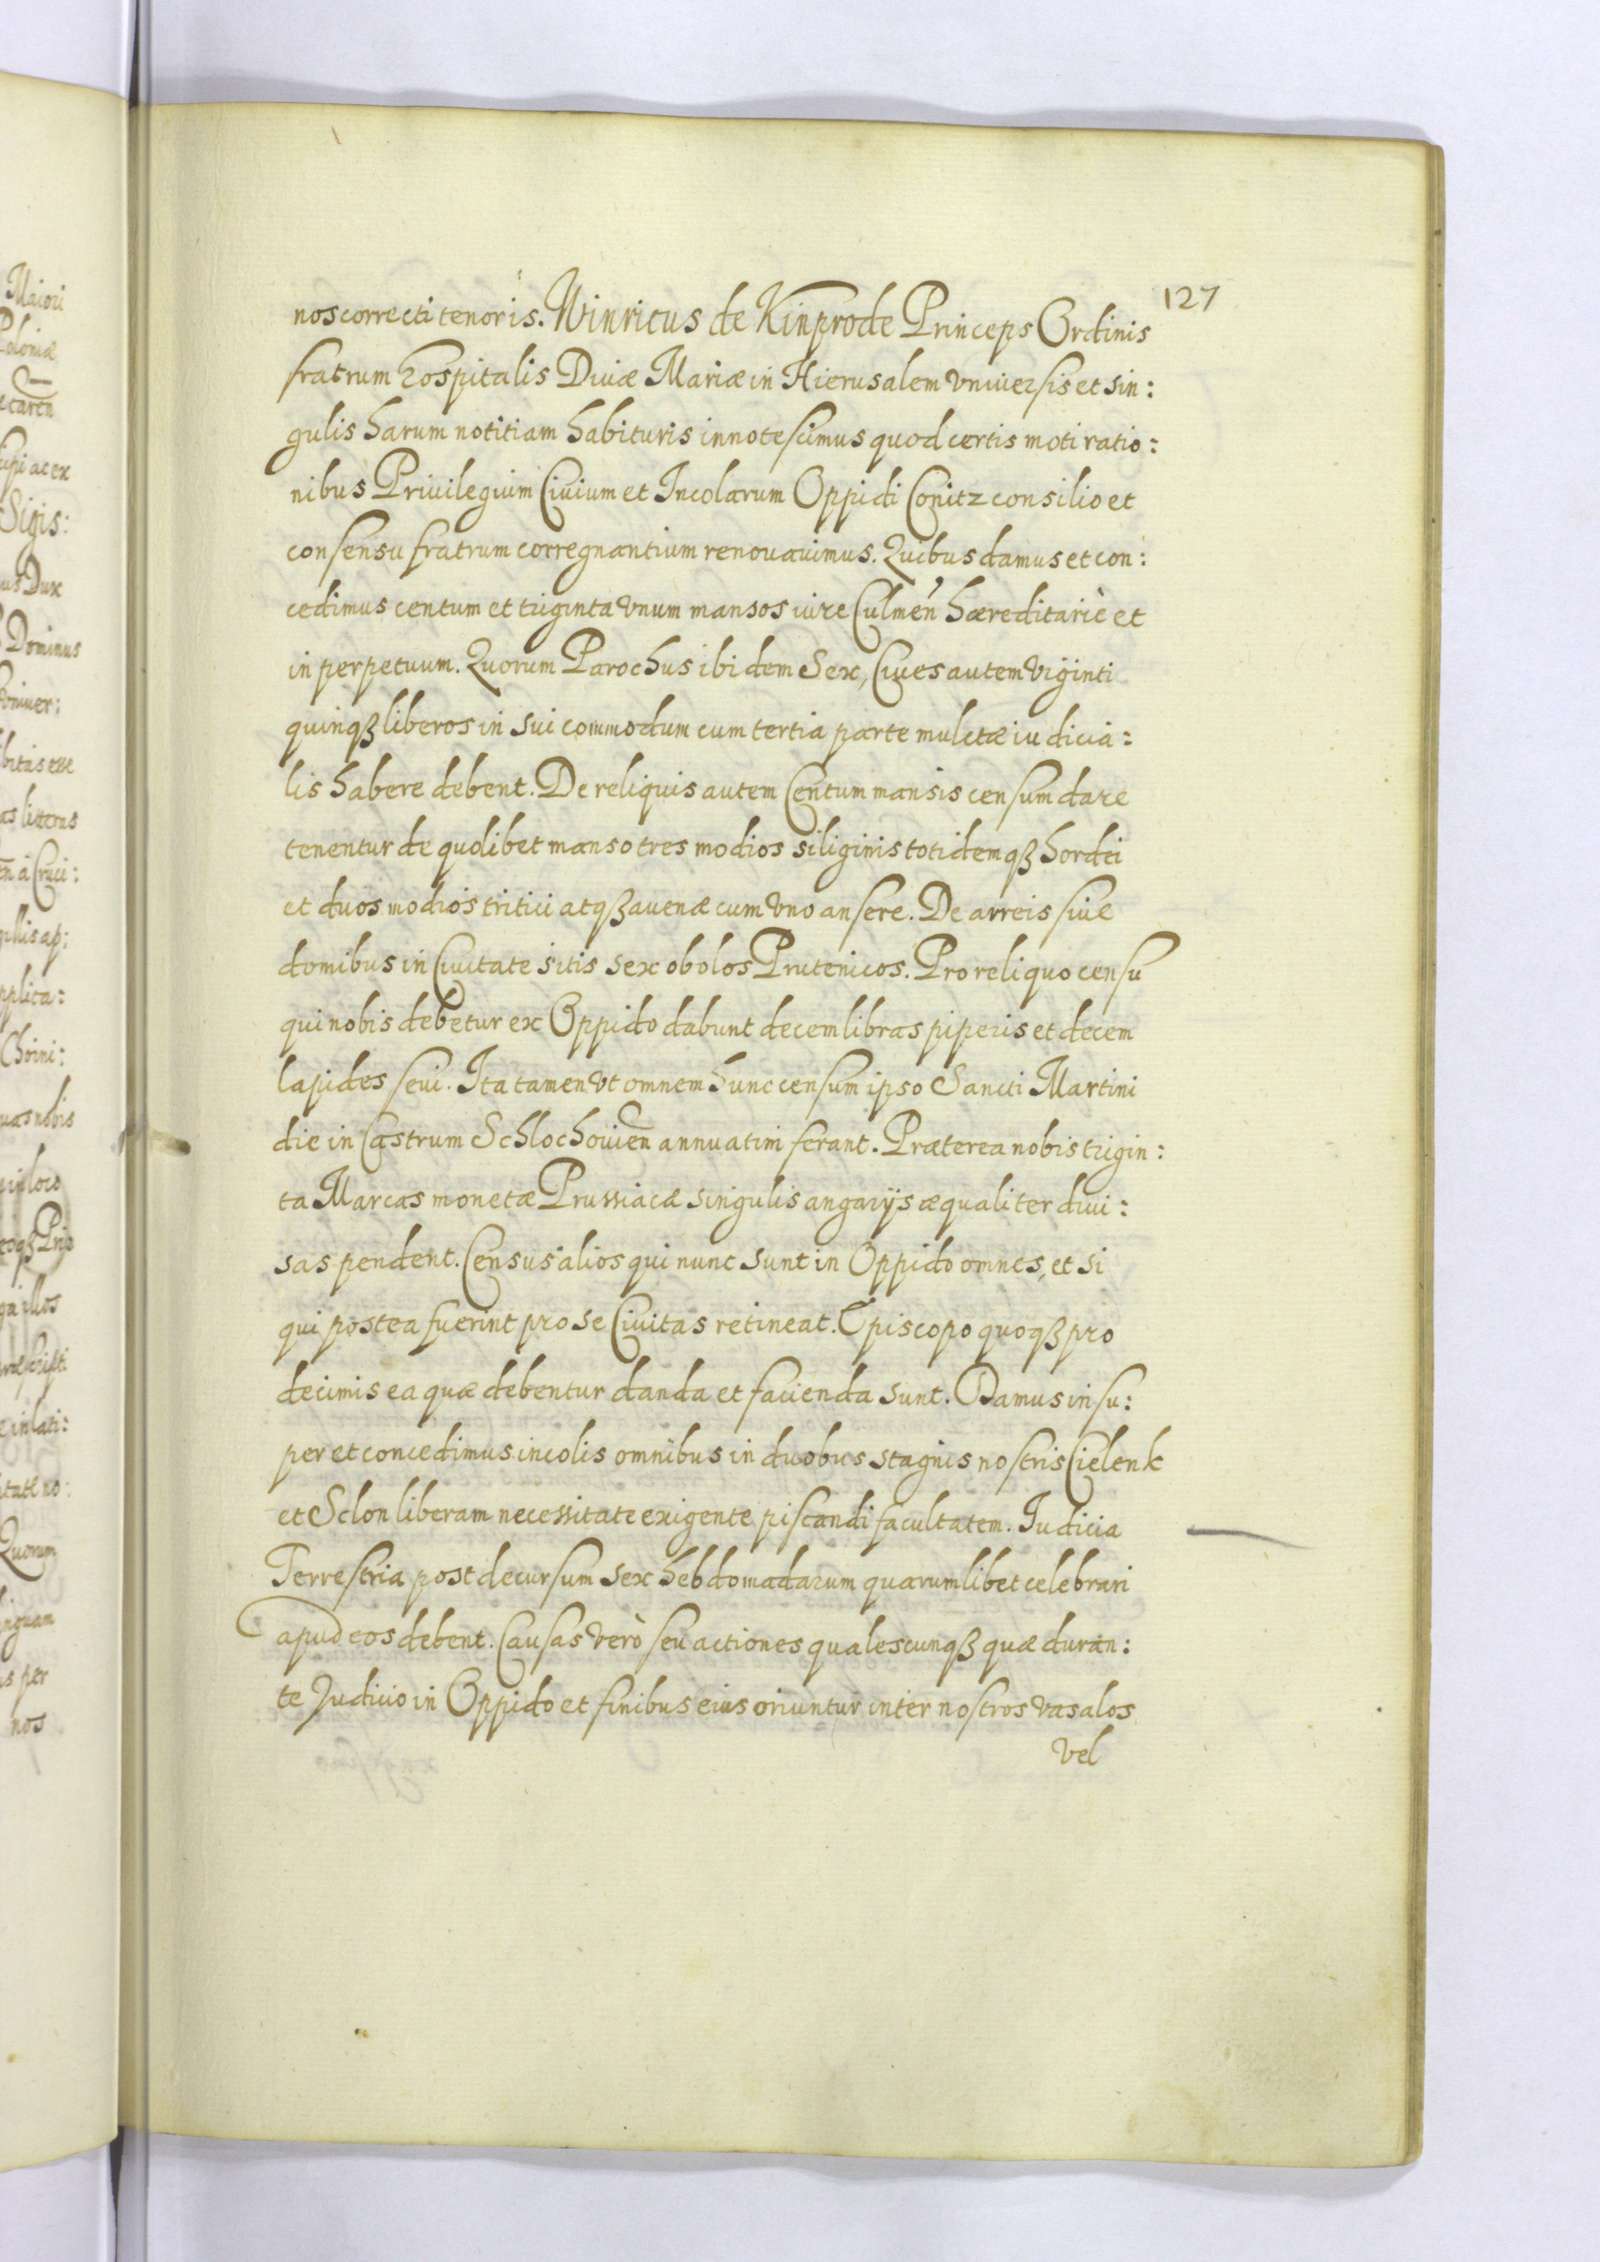 127
nos correcti tenoris. Winricus de Kinprode Princeps Ordinis
fratrum hospitalis Diuæ Mariæ in Hierusalem vniuersis et sin:
gulis harum notitiam habituris innotescimus quod certis moti ratio:
nibus Priuilegium Ciuium et Incolarum Oppidi Conitz consilio et
consensu fratrum corregnantium renouauimus. Quibus damus et con:
cedimus centum et triginta vnum mansos iure Culmeń hæreditariè et
in perpetuum. Quorum Parochus ibidem Sex, Ciues autem viginti
quinqȝ liberos in sui commodum cum tertia parte mulctæ iudicia:
lis habere debent. De reliquis autem Centum mansis censum dare
tenentur de quolibet manso tres modios siliginis totidemqȝ hordei
et duos modios tritici atqȝ auenæ cum vno ansere. De arreis siue
domibus in Ciuitate sitis sex obolos Prutenicos. Pro reliquo censu
qui nobis debetur ex Oppido dabunt decem libras piperis et decem
lapides seui. Ita tamen vt omnem hunc censum ipso Sancti Martini
die in Castrum Schlochouien annuatim ferant. Præterea nobis trigin:
ta Marcas monetæ Prussiacæ singulis angarijs æqualiter diui:
sas pendent. Census alios qui nunc sunt in Oppido omnes, et si
qui postea fuerint pro se Ciuitas retineat. Episcopo quoqȝ pro
decimis ea quæ debentur danda et facienda sunt. Damus insu:
per et concedimus incolis omnibus in duobus stagnis nostris Cielenk
et Sclon liberam necessitate exigente piscandi facultatem. Iudicia
Terrestria post decursum sex hebdomadarum quarumlibet celebrari
apud eos debent. Causas verò seu actiones qualescunqȝ quæ duran:
te Judicio in Oppido et finibus eius oriuntur inter nostros vasalos
vel